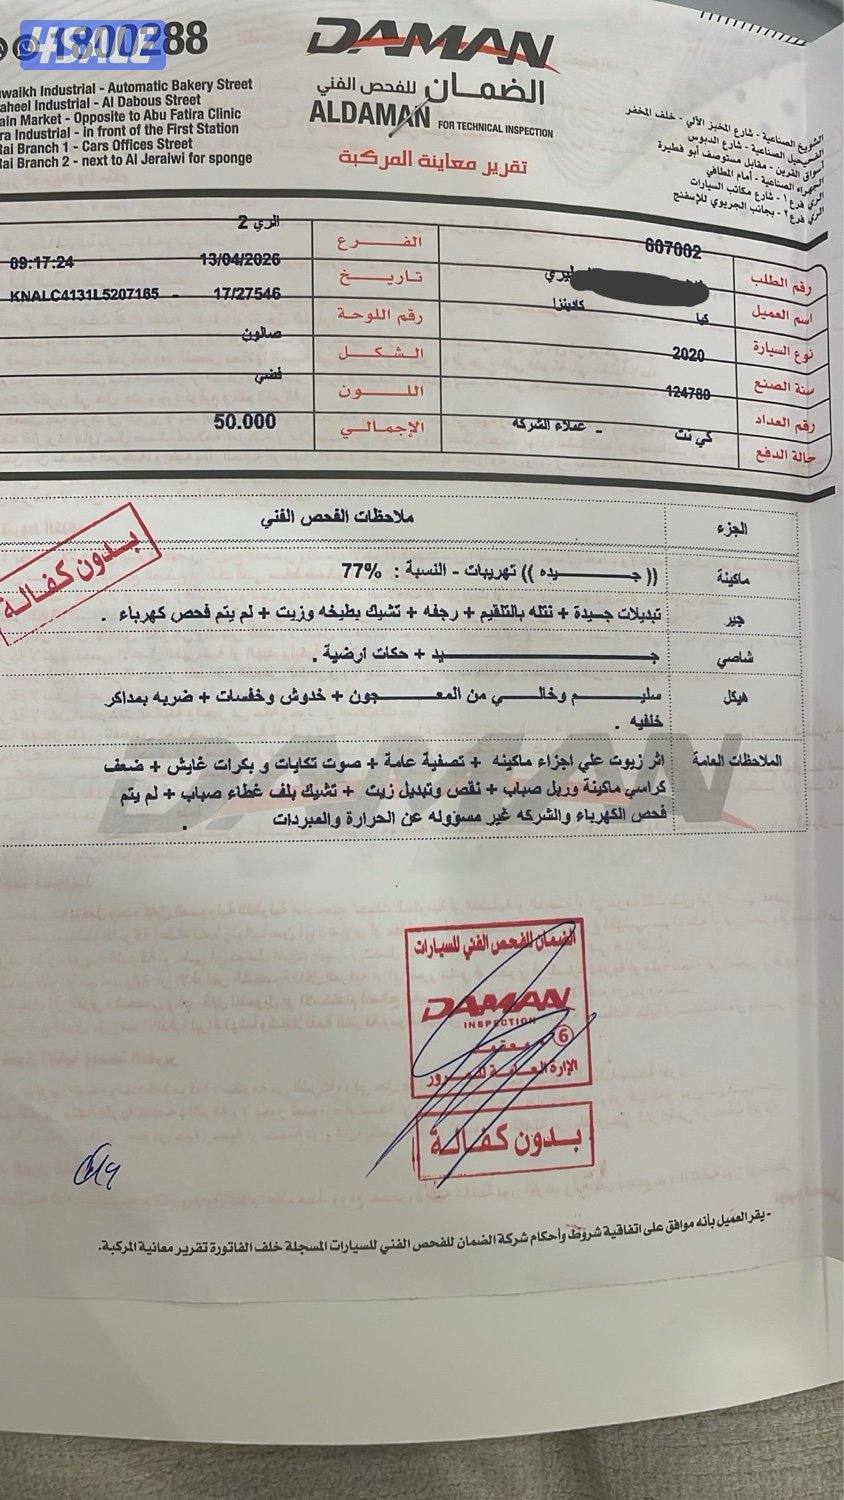 4SALE
1800288
DAMAN
الضمان للفحص الفني
ALDAMAN FOR TECHNICAL INSPECTION
تقرير معاينة المركبة
waikh Industrial - Automatic Bakery Street
aheel Industrial - Al Dabous Street
ain Market - Opposite to Abu Fatira Clinic
ra Industrial - in front of the First Station
Rai Branch 1 - Cars Offices Street
Rai Branch 2 - next to Al Jeraiwi for sponge
الشويخ الصناعية - شارع المخبز الآلي - خلف المخفر
الفحيحيل الصناعية - شارع الدبوس
أسواق القرين - مقابل مستوصف أبو فطيرة
الجهراء الصناعية - أمام المطافي
الري فرع ١ - شارع مكاتب السيارات
الري فرع ٢ - بجانب الجريوي للإسفنج
رقم الطلب 607002 الفرع الري 2
اسم العميل تاريخ 13/04/2026 09:17:24
نوع السيارة كيا كادينزا رقم اللوحة 17/27546 - KNALC4131L5207165
سنة الصنع 2020 الشكل صالون
رقم العداد 124780 اللون فضي
حالة الدفع كي نت - عملاء الشركه الإجمالي 50.000
الجزء ملاحظات الفحص الفني
بدون كفالة
ماكينة (( جيده )) تهريبات - النسبة : 77%
جير تبديلات جيدة + نتله بالتلقيم + رجفه + تشيك بطيخه وزيت + لم يتم فحص كهرباء .
شاصي جيد + حكات ارضية .
هيكل سليم وخالي من المعجون + خدوش وخفسات + ضربه بمداكر
خلفيه .
الملاحظات العامة اثر زيوت علي اجزاء ماكينه + تصفية عامة + صوت تكايات و بكرات غايش + ضعف
كراسي ماكينة وربل صباب + نقص وتبديل زيت + تشيك بلف غطاء صباب + لم يتم
فحص الكهرباء والشركه غير مسؤوله عن الحرارة والمبردات .
DAMAN
الضمان للفحص الفني للسيارات
DAMAN
INSPECTION
6
الإدارة العامة للمرور
بدون كفالة
- يقر العميل بأنه موافق على اتفاقية شروط وأحكام شركة الضمان للفحص الفني للسيارات المسجلة خلف الفاتورة تقرير معانية المركبة.